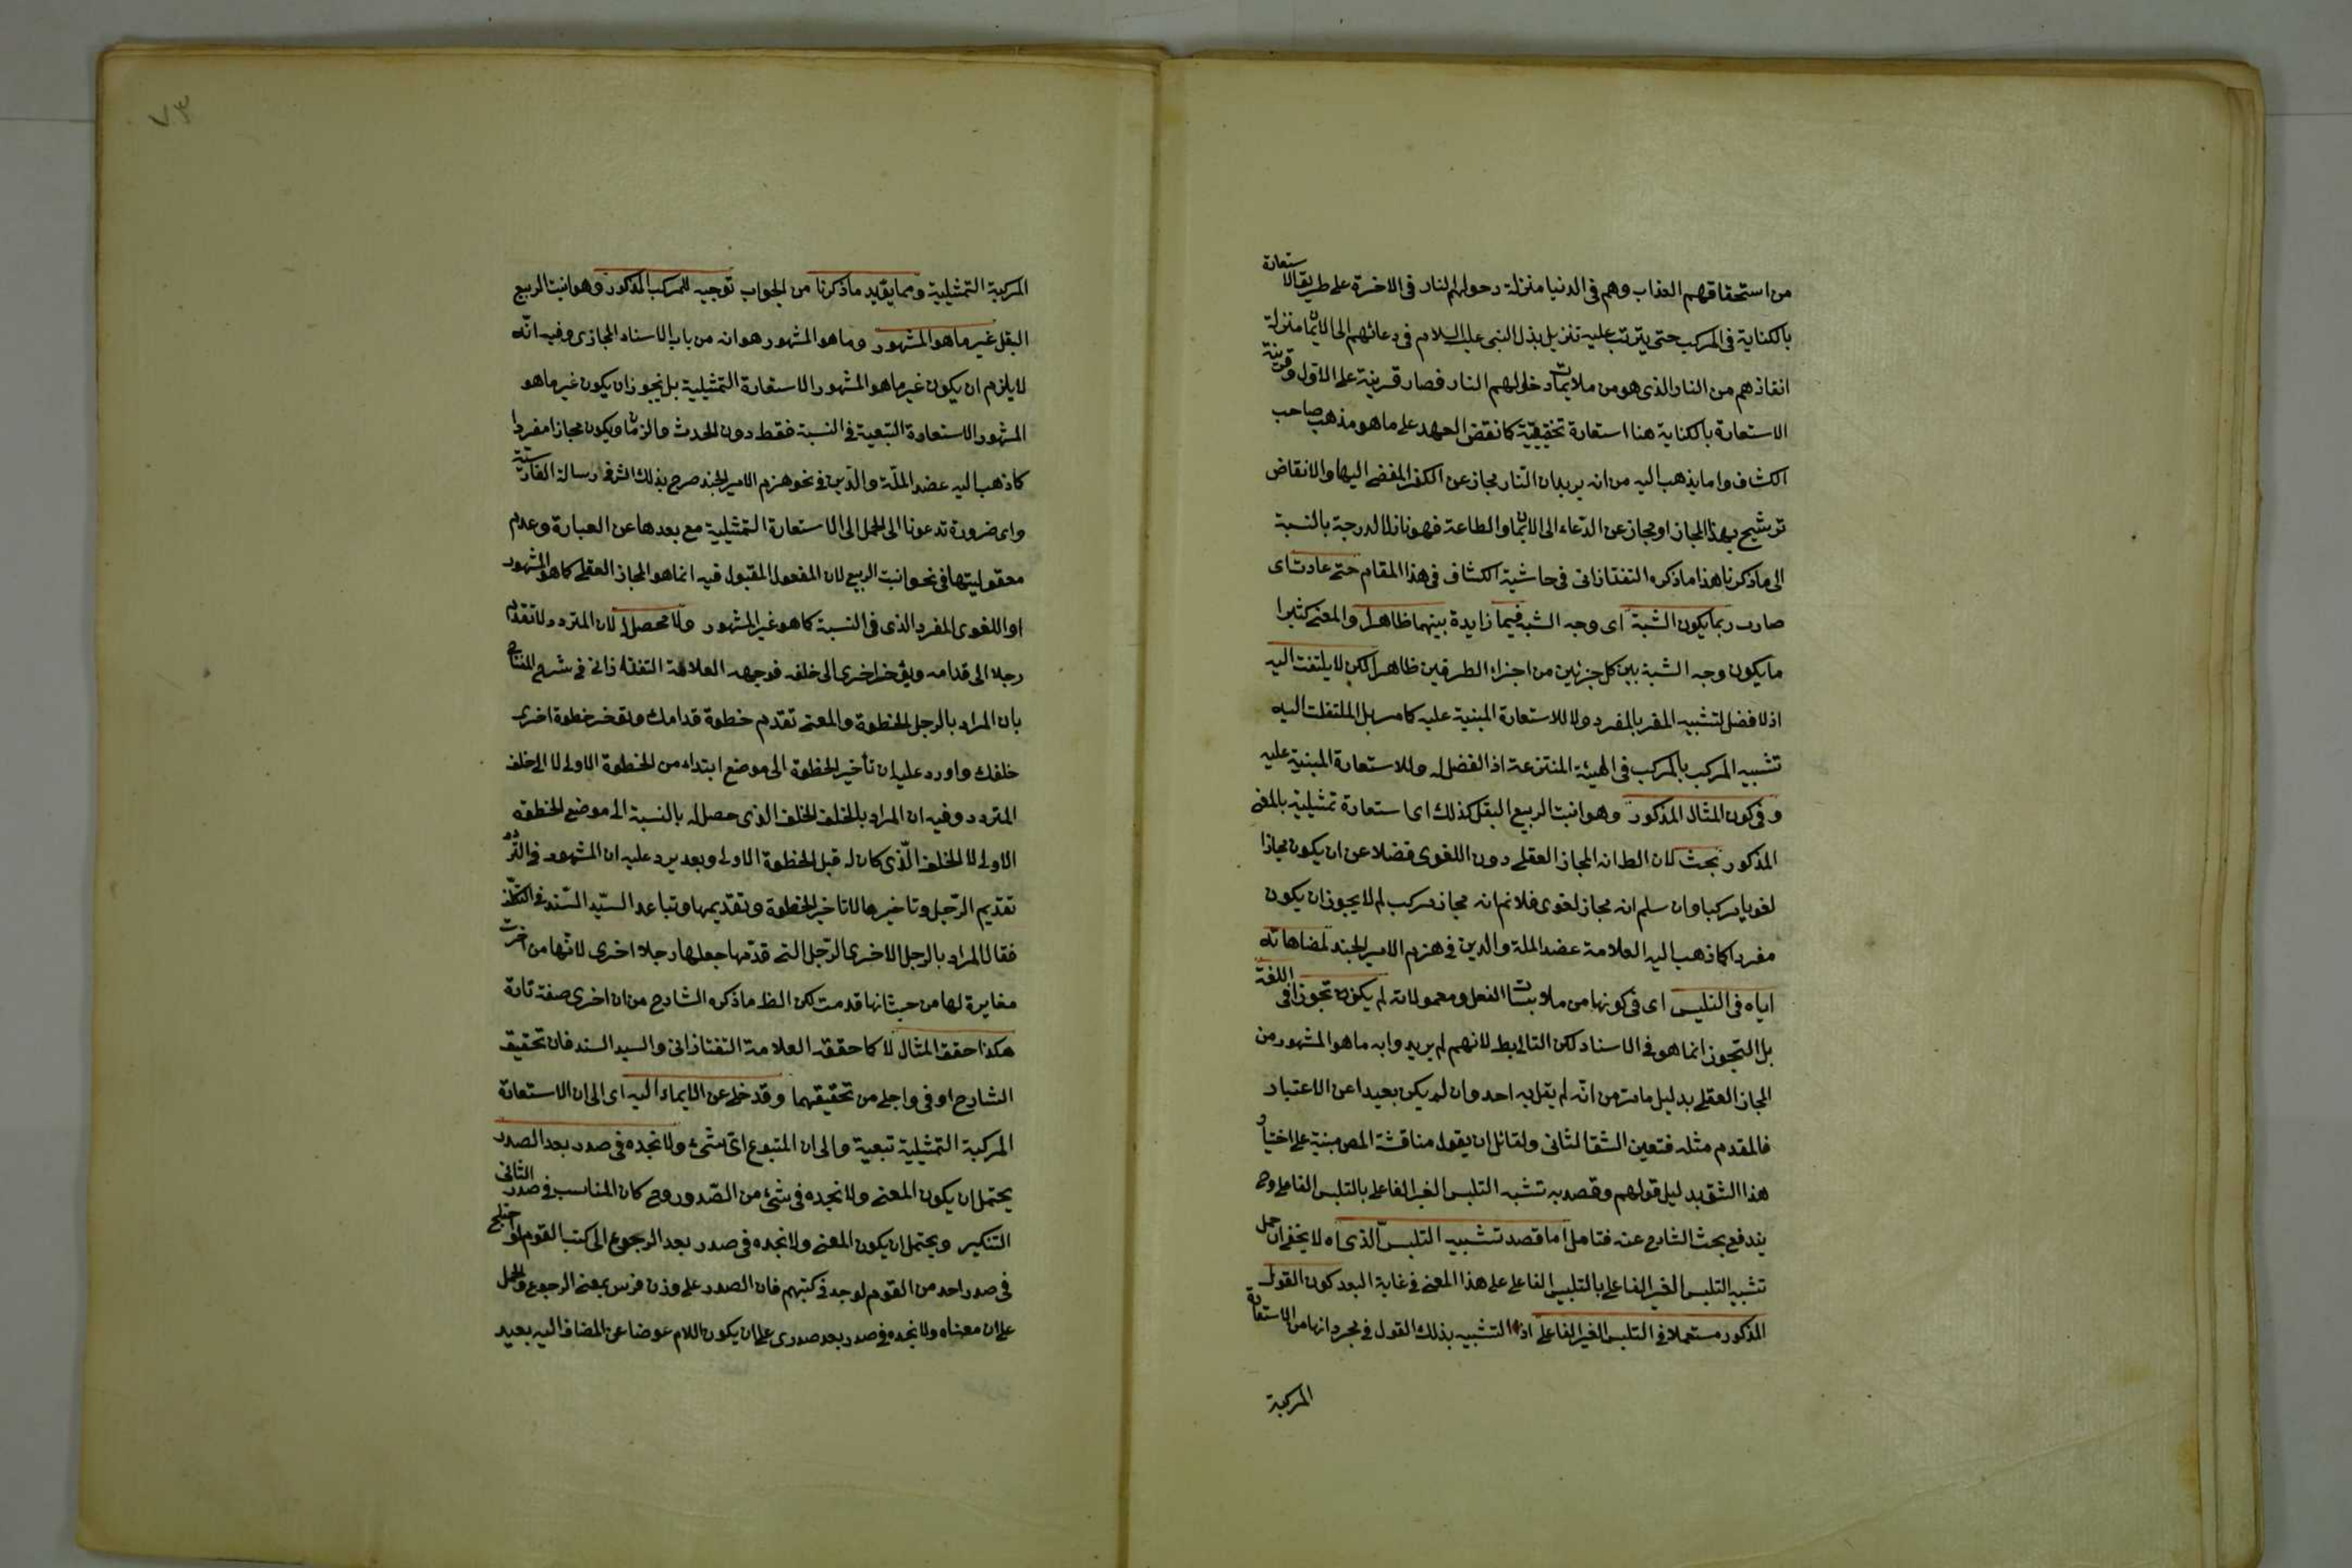 من استحقاقهم العذاب وهم في الدنيا منزلة دخولهم النار في الاخرة على طريق الاستعارة
بالكناية في المركب حتى يترتب عليه تنزيل بذل النبي عليه السلام في دعائهم الى الايمان منزلة
انقاذهم من النار الذي هو من ملايمات دخولهم النار فصار قرينة على الاول وقرينة
الاستعارة بالكناية هنا استعارة تحقيقية كما نقض العهد على ما هو مذهب صاحب
الكشاف واما يذهب اليه من انه يريد ان النار مجاز عن الكفر المفضي اليها والانقاض
ترشيح بهذا المجاز او مجاز عن الدعاء الى الايمان والطاعة فهو نازل الدرجة بالنسبة
الى ما ذكرنا هذا ما ذكره التفتازاني في حاشية الكشاف في هذا المقام حتى عادت اي
صارت ربما يكون الشبة اي وجه الشبه فيما زايدة بينهما ظاهرا والمعنى كثيرا
ما يكون وجه الشبة بين كل جزئين من اجزاء الطرفين ظاهرا لكن لا يلتفت اليه
اذ لا فضل لتشبيه المفرد بالمفرد ولا للاستعارة المبنية عليه كما مر بل الملتفت اليه
تشبيه المركب بالمركب في الهيئة المنتزعة اذ الفضل له وللاستعارة المبنية عليه
وفي كون المثال المذكور وهو انبت الربيع البقل كذلك اي استعارة تمثيلية بالمعنى
المذكور بحث لان الظ انه المجاز العقلي دون اللغوي فضلا عن ان يكون مجازا
لغويا مركبا وان سلم انه مجاز لغوي فلا نم انه مجاز مركب لم لا يجوز ان يكون
مفردا كما ذهب اليه العلامة عضد الملة والدين في هزم الامير الجند لمضاهاته
اياه في التلبس اي في كونها من ملابسات الفعل ومعمولاته لم يكن تجوزا في اللغة
بل التجوز انما هو في الاسناد لكن التالي بط لانهم لم يريدوا به ما هو المشهور من
المجاز العقلي بدليل ما مر من انه لم يقل به احد وان لم يكن بعيدا عن الاعتبار
فالمقدم مثله فتعين الشق الثاني ولقائل ان يقول مناقشة المص مبنية على اختيار
هذا الشق بدليل قولهم وقصد به تشبه التلبس الغير الفاعلي بالتلبس الفاعلي وح
يندفع بحث الشارح عنه فتامل اما قصد تشبيه التلبس الذي اه لا يخفى ان حمل
تشبيه التلبس الغير الفاعلي بالتلبس الفاعلي على هذا المعنى في غاية البعد كون القول
المذكور مستعملا في التلبس الغير الفاعلي اذ التشبيه بذلك القول في مجرد انها من الاستعارة
المركبة
٧٣
المركبة التمثيلية ومما يؤيد ما ذكرنا من الجواب توجيه للمركب المذكور وهو انبت الربيع
البقل غير ما هو المشهور وما هو المشهور هو انه من باب الاسناد المجازي وفيه انّه
لا يلزم ان يكون غير ما هو المشهور الاستعارة التمثيلية بل يجوز ان يكون غير ما هو
المشهور الاستعارة التبعية في النسبة فقط دون الحدث والزمان ويكون مجازا مفردا
كما ذهب اليه عضد الملّة والدّين في نحو هزم الامير الجند صرح بذلك الشر في رسالة الفارسية
واي ضرورة تدعونا الى الحمل الى الاستعارة التمثيلية مع بعدها عن العبارة وعدم
معقوليتها في نحو انبت الربيع لان المفعول المقبول فيه انما هو المجاز العقلي كما هو المشهور
او اللغوي المفرد الذي في النسبة كما هو غير المشهور ولا محصل له لان المتردد لا تقدم
رجلا الى قدامه ويؤخر اخرى الى خلفه فوجهه العلامة التفتازاني في شرح المفتاح
بان المراد بالرجل الخطوة والمعنى تقدم خطوة قدامك وتؤخر خطوة اخرى
خلفك واورد عليه ان تأخير الخطوة الى موضع ابتداء من الخطوة الاولى لا الى خلف
المتردد وفيه ان المراد بالخلف الخلف الذي حصل له بالنسبة الى موضع الخطوة
الاولى لا الخلف الّذي كان له قبل الخطوة الاولى وبعد يرد عليه ان المشهور في التردد
تقديم الرّجل وتاخيرها لا تاخير الخطوة وتقديمها وتباعد السيّد السّند في
فقال المراد بالرجل الاخرى الرّجل التي قدّمها جعلها رجلا اخرى لانّها من اخرت
مغايرة لها من حيث انها قدمت لكن الظ ما ذكره الشارح من ان اخرى صفة تارة
هكذا حقق المثال لا كما حققه العلامة التفتازاني والسيد السند فان تحقيق
الشارح اوفى واجلى من تحقيقهما وقد خلى عن الايماء اليه اي الى ان الاستعارة
المركبة التمثيلية تبعية والى ان المتبوع اي شيء ولا نجده في صدر بعد الصدر
يحتمل ان يكون المعنى ولا نجده في شيء من الصّدور وح كان المناسب في صدر الثاني
التنكير ويحتمل ان يكون المعنى ولا نجده في صدر بعد الرجوع الى كتب القوم لو اختلج
في صدر احد من القوم لوجد في كتبهم فان الصدر على وزن فرس بمعنى الرجوع والحمل
على ان معناه ولا نجده في صدر بعد صدري على ان يكون اللام عوضا عن المضاف اليه بعيد